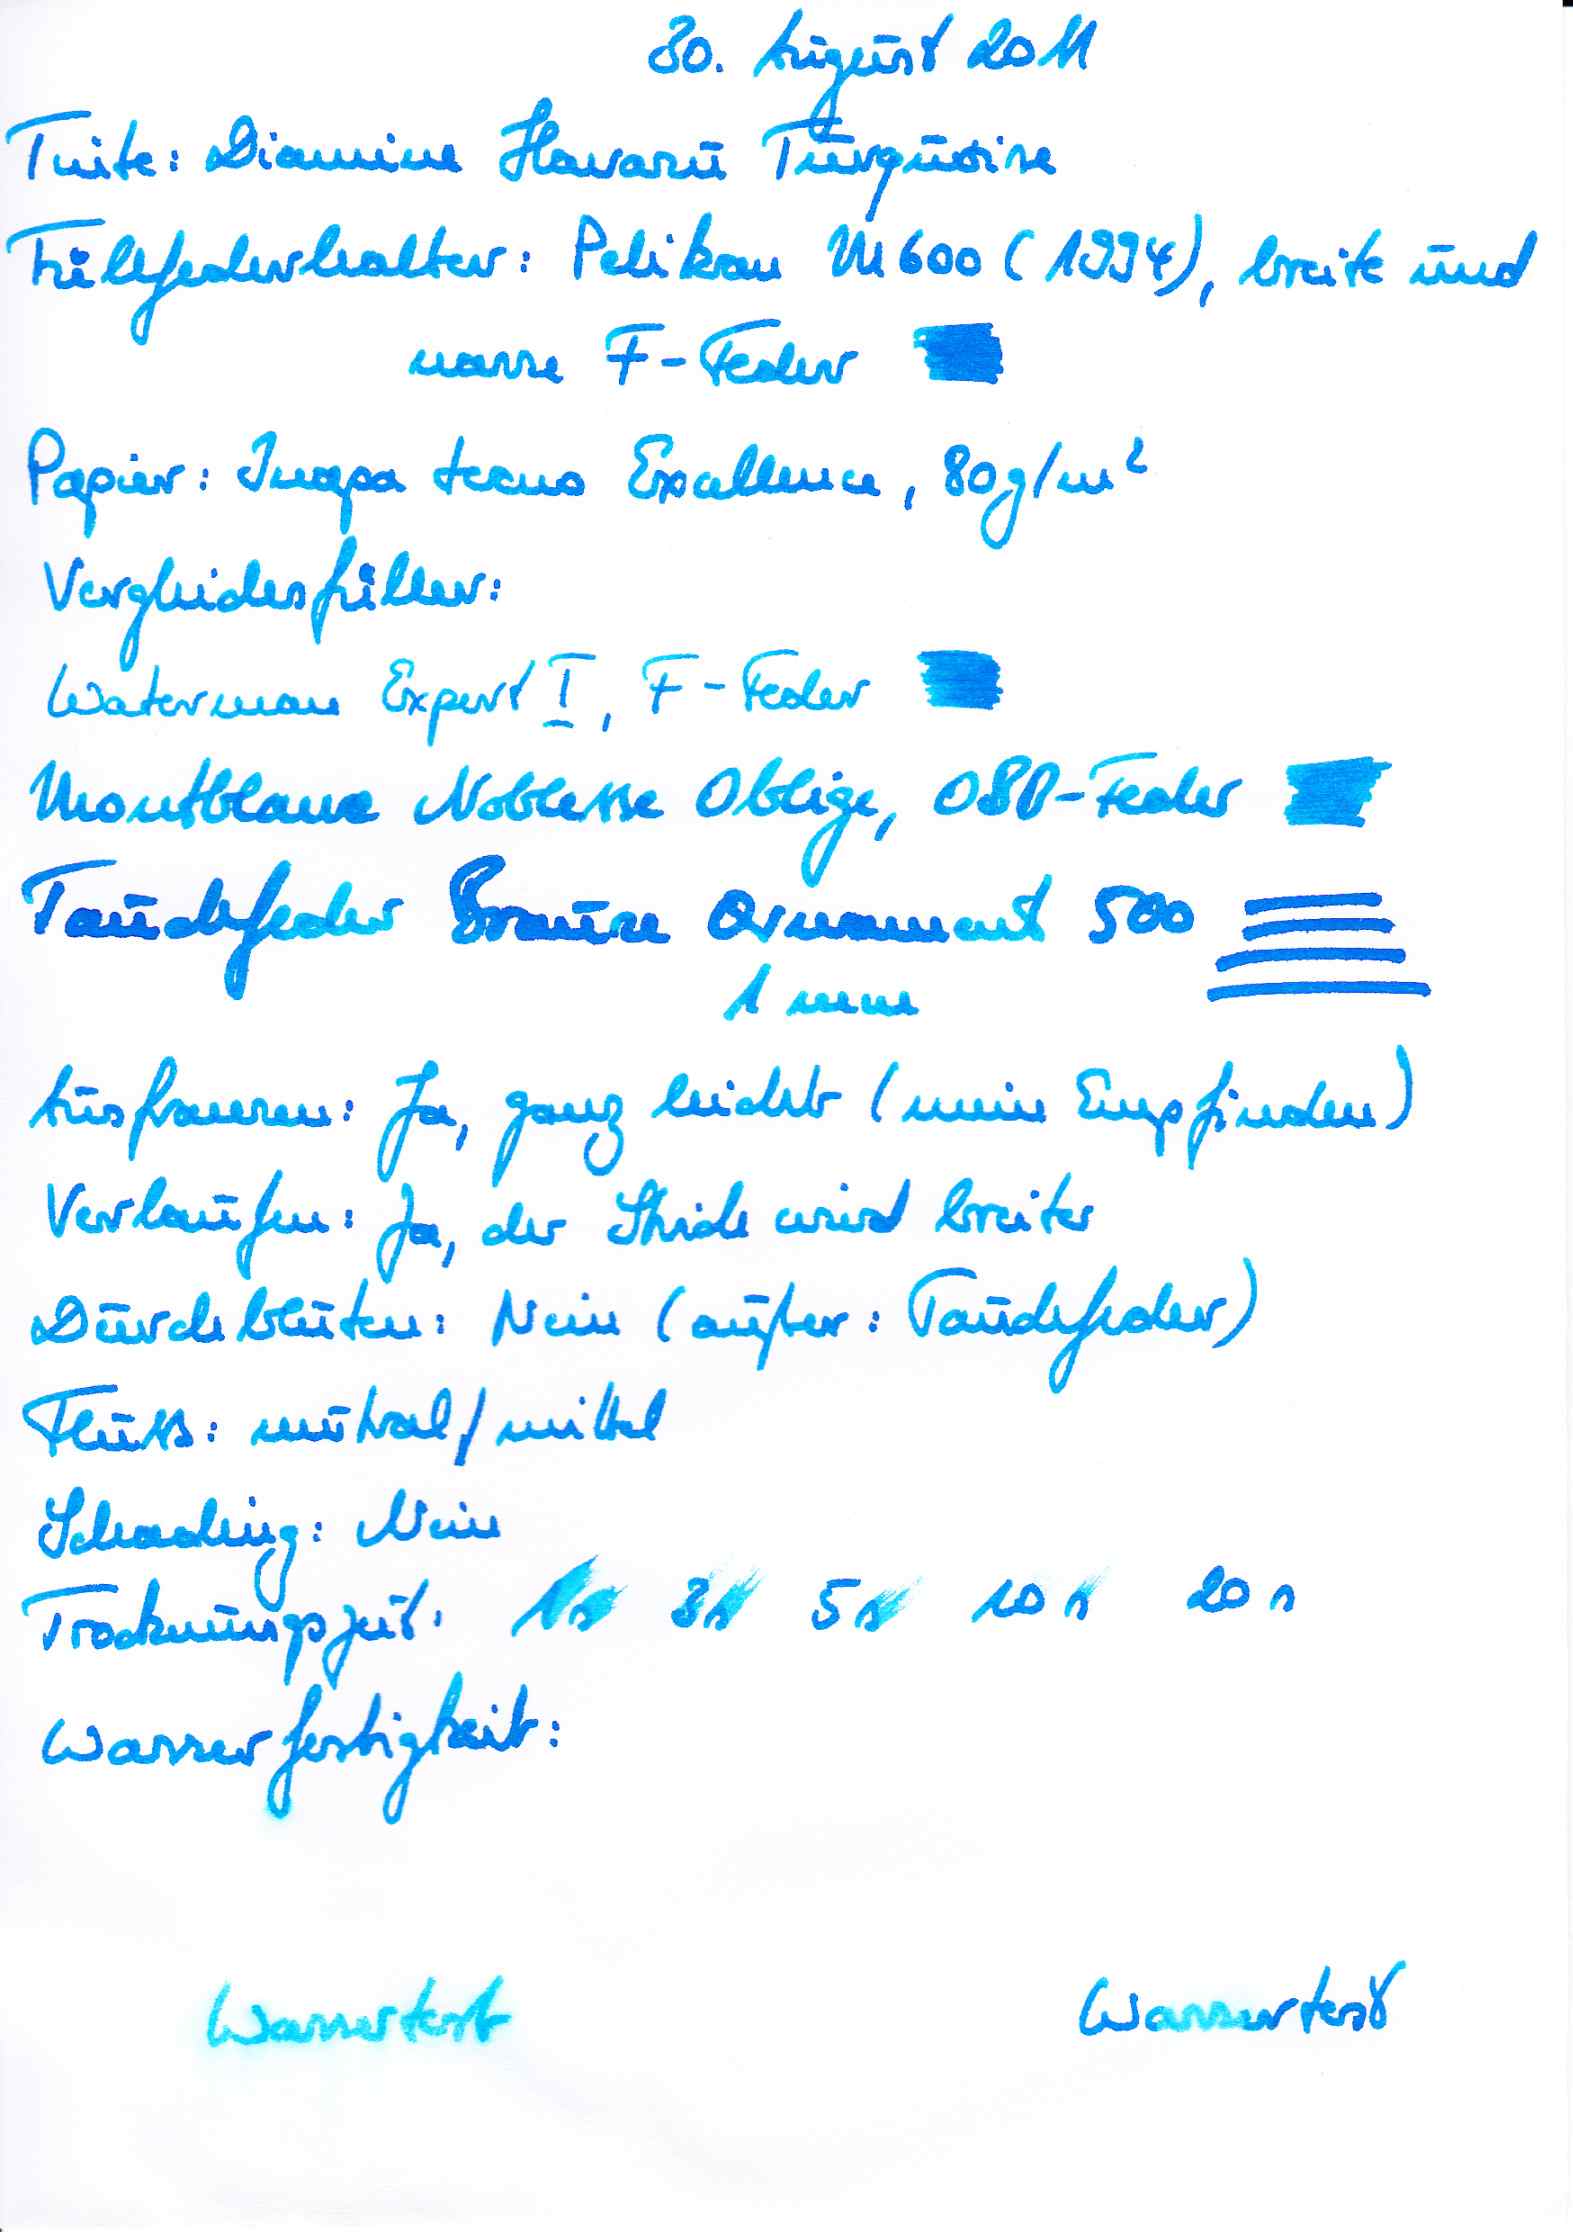 30. August 2011
Tinte: Diamine Havasu Turquoise
Füllfederhalter: Pelikan M600 (1994), breite und
nasse F-Feder
Papier: Inapa tecno Excellence, 80g/m²
Vergleichsfüller:
Waterman Expert I, F-Feder
Montblanc Noblesse Oblige, OBB-Feder
Tauchfeder Brause Ornament 500
1 mm
Ausfransen: Ja, ganz leicht (mein Empfinden)
Verlaufen: Ja, der Strich wird breiter
Durchbluten: Nein (außer: Tauchfeder)
Fluss: neutral/mittel
Schading: Nein
Trocknungszeit: 1s 3s 5s 10s 20s
Wasserfestigkeit:
Wassertest Wassertest